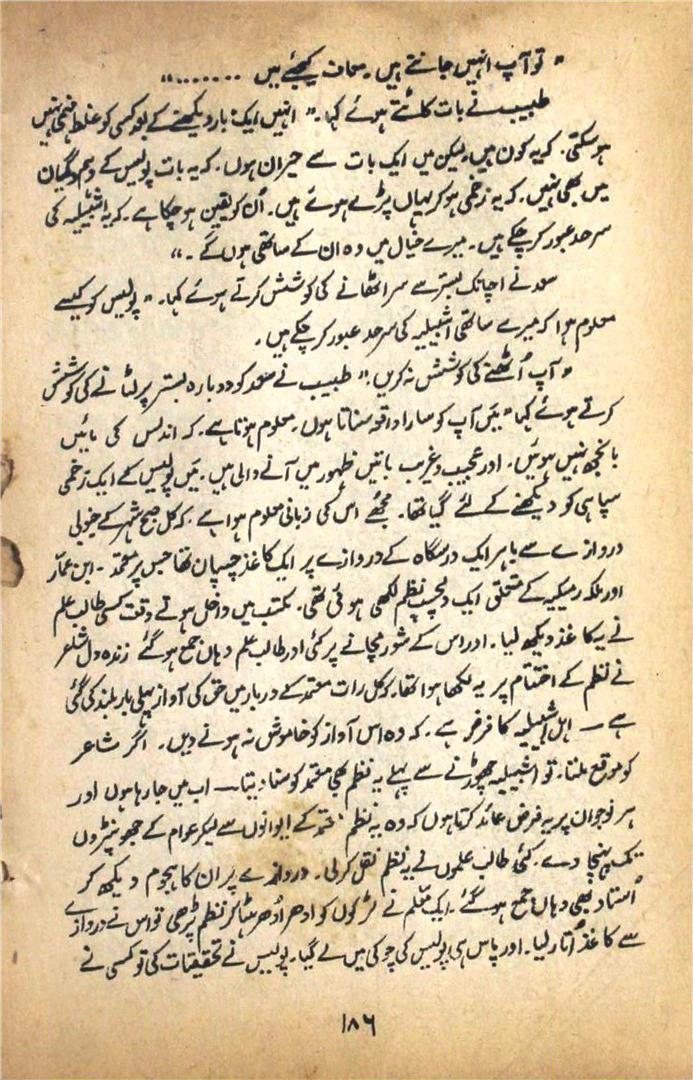 ” تو آپ انہیں جانتے ہیں۔ معاف کیجئے میں ........“
طبیب نے بات کاٹتے ہوئے کہا۔ ” انہیں ایک بار دیکھنے کے بعد کسی کو غلط فہمی نہیں
ہو سکتی۔ کہ یہ کون ہیں۔ لیکن میں ایک بات سے حیران ہوں۔ کہ یہ بات پولیس کے وہم و گمان
میں بھی نہیں۔ کہ یہ زخمی ہو کر یہاں پڑے ہوئے ہیں۔ اُن کو یقین ہو چکا ہے۔ کہ یہ اشبیلیہ کی
سرحد عبور کر چکے ہیں۔ میرے خیال میں وہ ان کے ساتھی ہوں گے ۔“
سعد نے اچانک بستر سے سر اٹھانے کی کوشش کرتے ہوئے کہا۔ ” پولیس کو کیسے
معلوم ہوا کہ میرے ساتھی اشبیلیہ کی سرحد عبور کر چکے ہیں ۔
” آپ اُٹھنے کی کوشش نہ کریں ۔“ طبیب نے سعد کو دوبارہ بستر پر لٹانے کی کوشش
کرتے ہوئے کہا ” میَں آپ کو سارا واقعہ سناتا ہوں۔ معلوم ہوتا ہے۔ کہ اندلس کی مائیں
بانجھ نہیں ہوئیں۔ اور عجیب و غریب باتیں ظہور میں آنے والی ہیں۔ میَں پولیس کے ایک زخمی
سپاہی کو دیکھنے کے لئے گیا تھا۔ مجھے اس کی زبانی معلوم ہوا ہے ۔ کہ کل صبح شہر کے جنوبی
دروازے سے باہر ایک درسگاہ کے دروازے پر ایک کاغذ چسپاں تھا جس پر معتمد ۔ ابن عمار
اور ملکہ رمیکیہ کے متعلق ایک دلچسپ نظم لکھی ہوئی تھی۔ مکتب میں داخل ہوتے وقت کسی طالب علم
نے یہ کاغذ دیکھ لیا۔ اور اس کے شور مچانے پر کئی اور طالب علم وہاں جمع ہو گئے زندہ دل شاعر
نے نظم کے اختتام پر یہ لکھا ہوا تھا۔ کہ کل رات معتمد کے دربار میں حق کی آواز پہلی بار بلند کی گئی
ہے — اہل اشبیلیہ کا فرض ہے ۔ کہ وہ اس آواز کو خاموش نہ ہونے دیں۔ اگر شاعر
کو موقع ملتا۔ تو اشبیلیہ چھوڑنے سے پہلے یہ نظم بھی معتمد کو سنا دیتا — اب میں جا رہا ہوں اور
ہر نوجوان پر یہ فرض عائد کرتا ہوں کہ وہ یہ نظم معتمد کے ایوانوں سے لیکر عوام کے جھونپڑوں
تک پہنچا دے۔ کئی طالب علموں نے یہ نظم نقل کر لی۔ دروازے پر ان کا ہجوم دیکھ کر
اُستاد بھی وہاں جمع ہو گئے ۔ ایک معلم نے لڑکوں کو ادھر اُدھر ہٹا کر نظم پڑھی تو اس نے دروازے
سے کاغذ اُتار لیا۔ اور پاس ہی پولیس کی چوکی میں لے گیا۔ پولیس نے تحقیقات کی تو کسی نے
۱۸۶